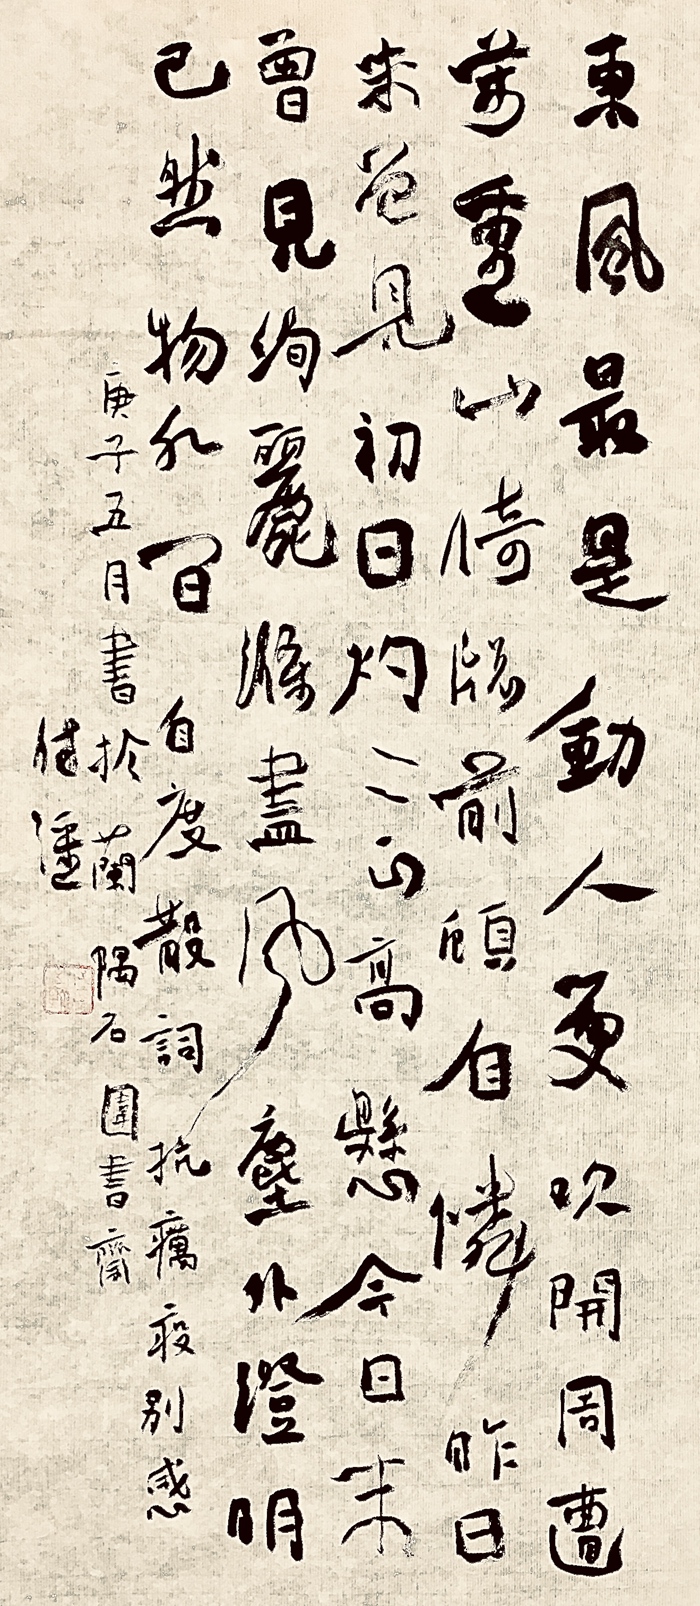 東風最是動人更吹開周遭
萬重山倚牕前頋自憐昨日
未曾見初日灼〻山高懸今日未
曾見絢麗滌盡風塵外澄明
已然物外間 自度散詞 抗癘疫別感
庚子五月書於蘭隅石園書齋